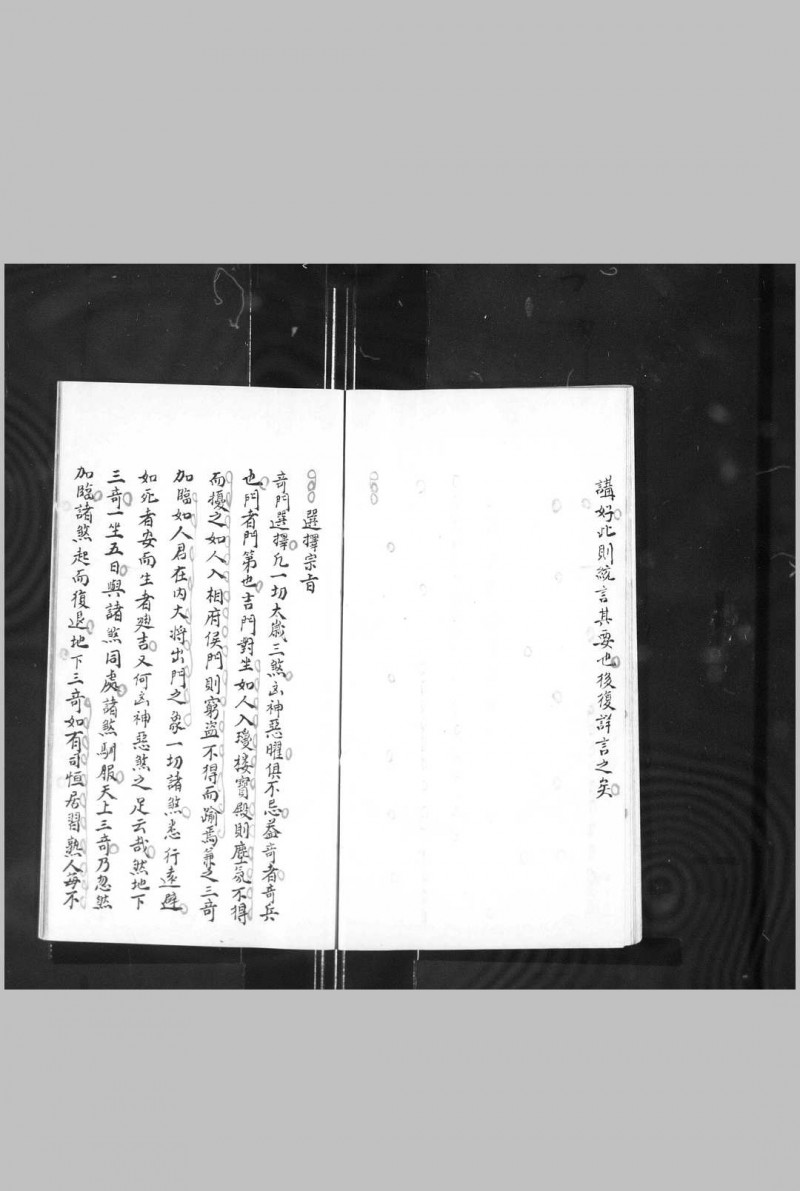 講好此則統言其要也後復詳言之矣
選擇宗旨
奇門選擇凡一切太歲三煞凶神惡曜俱不忌葢奇者奇兵
也門者門第也吉門對坐如人入瓊樓寶殿則塵氛不得
而擾之如人入相府侯門則窮盜不得而踰焉兼之三奇
加臨如人君在內大將出門之象一切諸煞悉行遠避
如死者安而生者迪吉又何凶神惡煞之足云哉然地下
三奇一坐五日與諸煞同處諸煞馴服天上三奇乃忽然
加臨諸煞起而復退地下三奇如有司恒居習熟人每不